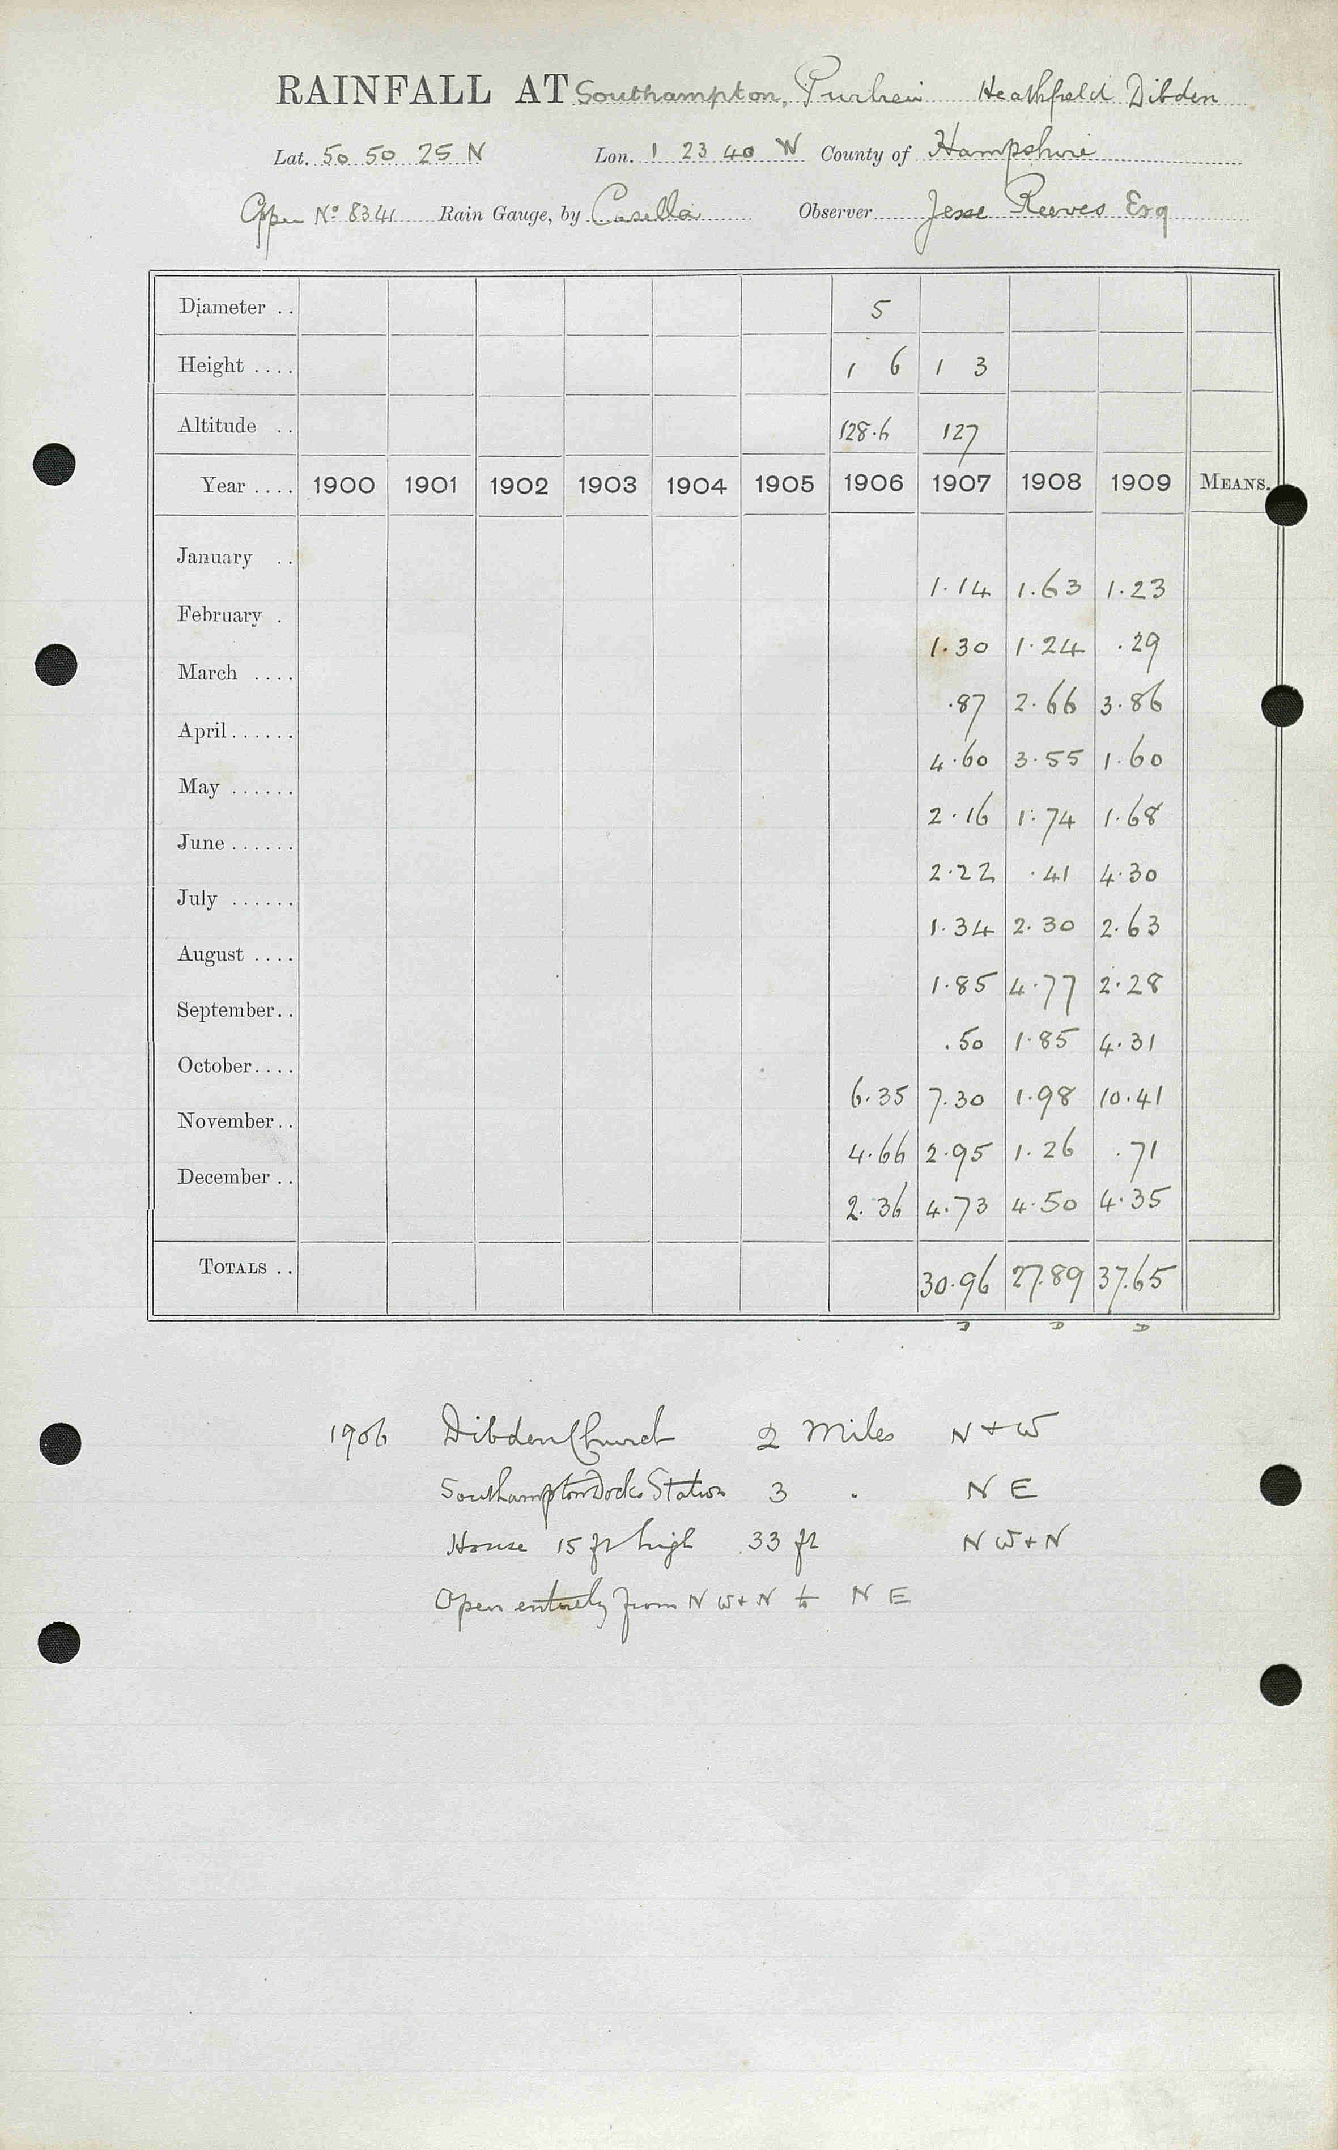 RAINFALL AT Southampton, Purlieu Heathfield Dibden
Lat. 50 50 25 N Lon. 1 23 40 W County of Hampshire
No 8341 Rain Gauge, by Casella Observer Jesse Reeves Esq
Diameter .. 5
Height .... 1 6 1 3
Altitude .. 128.6 127
Year .... 1900 1901 1902 1903 1904 1905 1906 1907 1908 1909 MEANS.
January ..
1.14 1.63 1.23
February .
1.30 1.24 .29
March ....
.87 2.66 3.86
April......
4.60 3.55 1.60
May ......
2.16 1.74 1.68
June ......
2.22 .41 4.30
July ......
1.34 2.30 2.63
August ....
1.85 4.77 2.28
September..
.50 1.85 4.31
October....
6.35 7.30 1.98 10.41
November..
4.66 2.95 1.26 .71
December ..
2.36 4.73 4.50 4.35
TOTALS .. 30.96 27.89 37.65
D D D
1906 Dibden Church 2 Miles N + W
Southampton Docks Station 3 . N E
House 15 ft high 33 ft N W + N
Open entirely from N W + N to N E